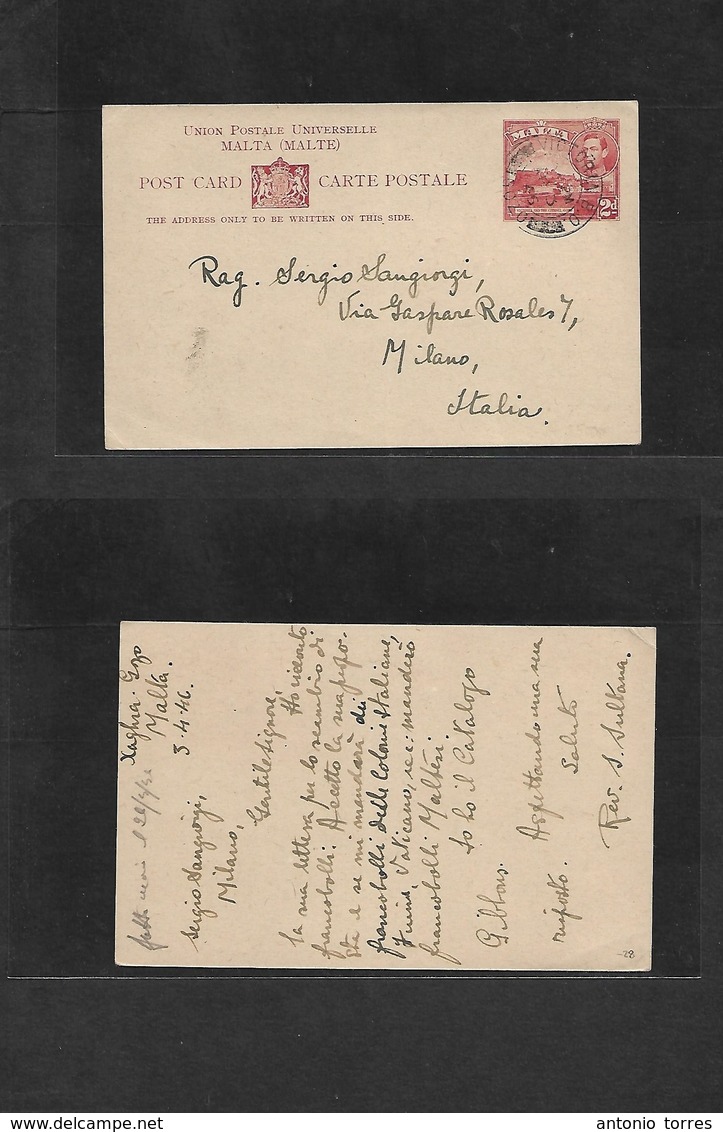 UNION POSTALE UNIVERSELLE
MALTA (MALTE)
POST CARD CARTE POSTALE
THE ADDRESS ONLY TO BE WRITTEN ON THIS SIDE.
MALTA
2d
VICTORIA
Rag. Sergio Sangiorgi,
Via Gaspare Rosales 7,
Milano,
Italia.
Xaghra. Gozo
Malta.
3.4.46.
Sergio Sangiorgi,
Milano,
Gentile Signore,
Ho ricevuto
la sua lettera per lo scambio di
francobolli. Accetto la sua propo-
sta e se mi manderà dei
francobolli delle Colonie Italiane,
Fiume, Vaticano, ecc. manderò
francobolli Maltesi.
Io ho il Catalogo
Gibbons.
Aspettando una sua
risposta. Saluto
Rev. S. Sultana.
-28
antonio torres